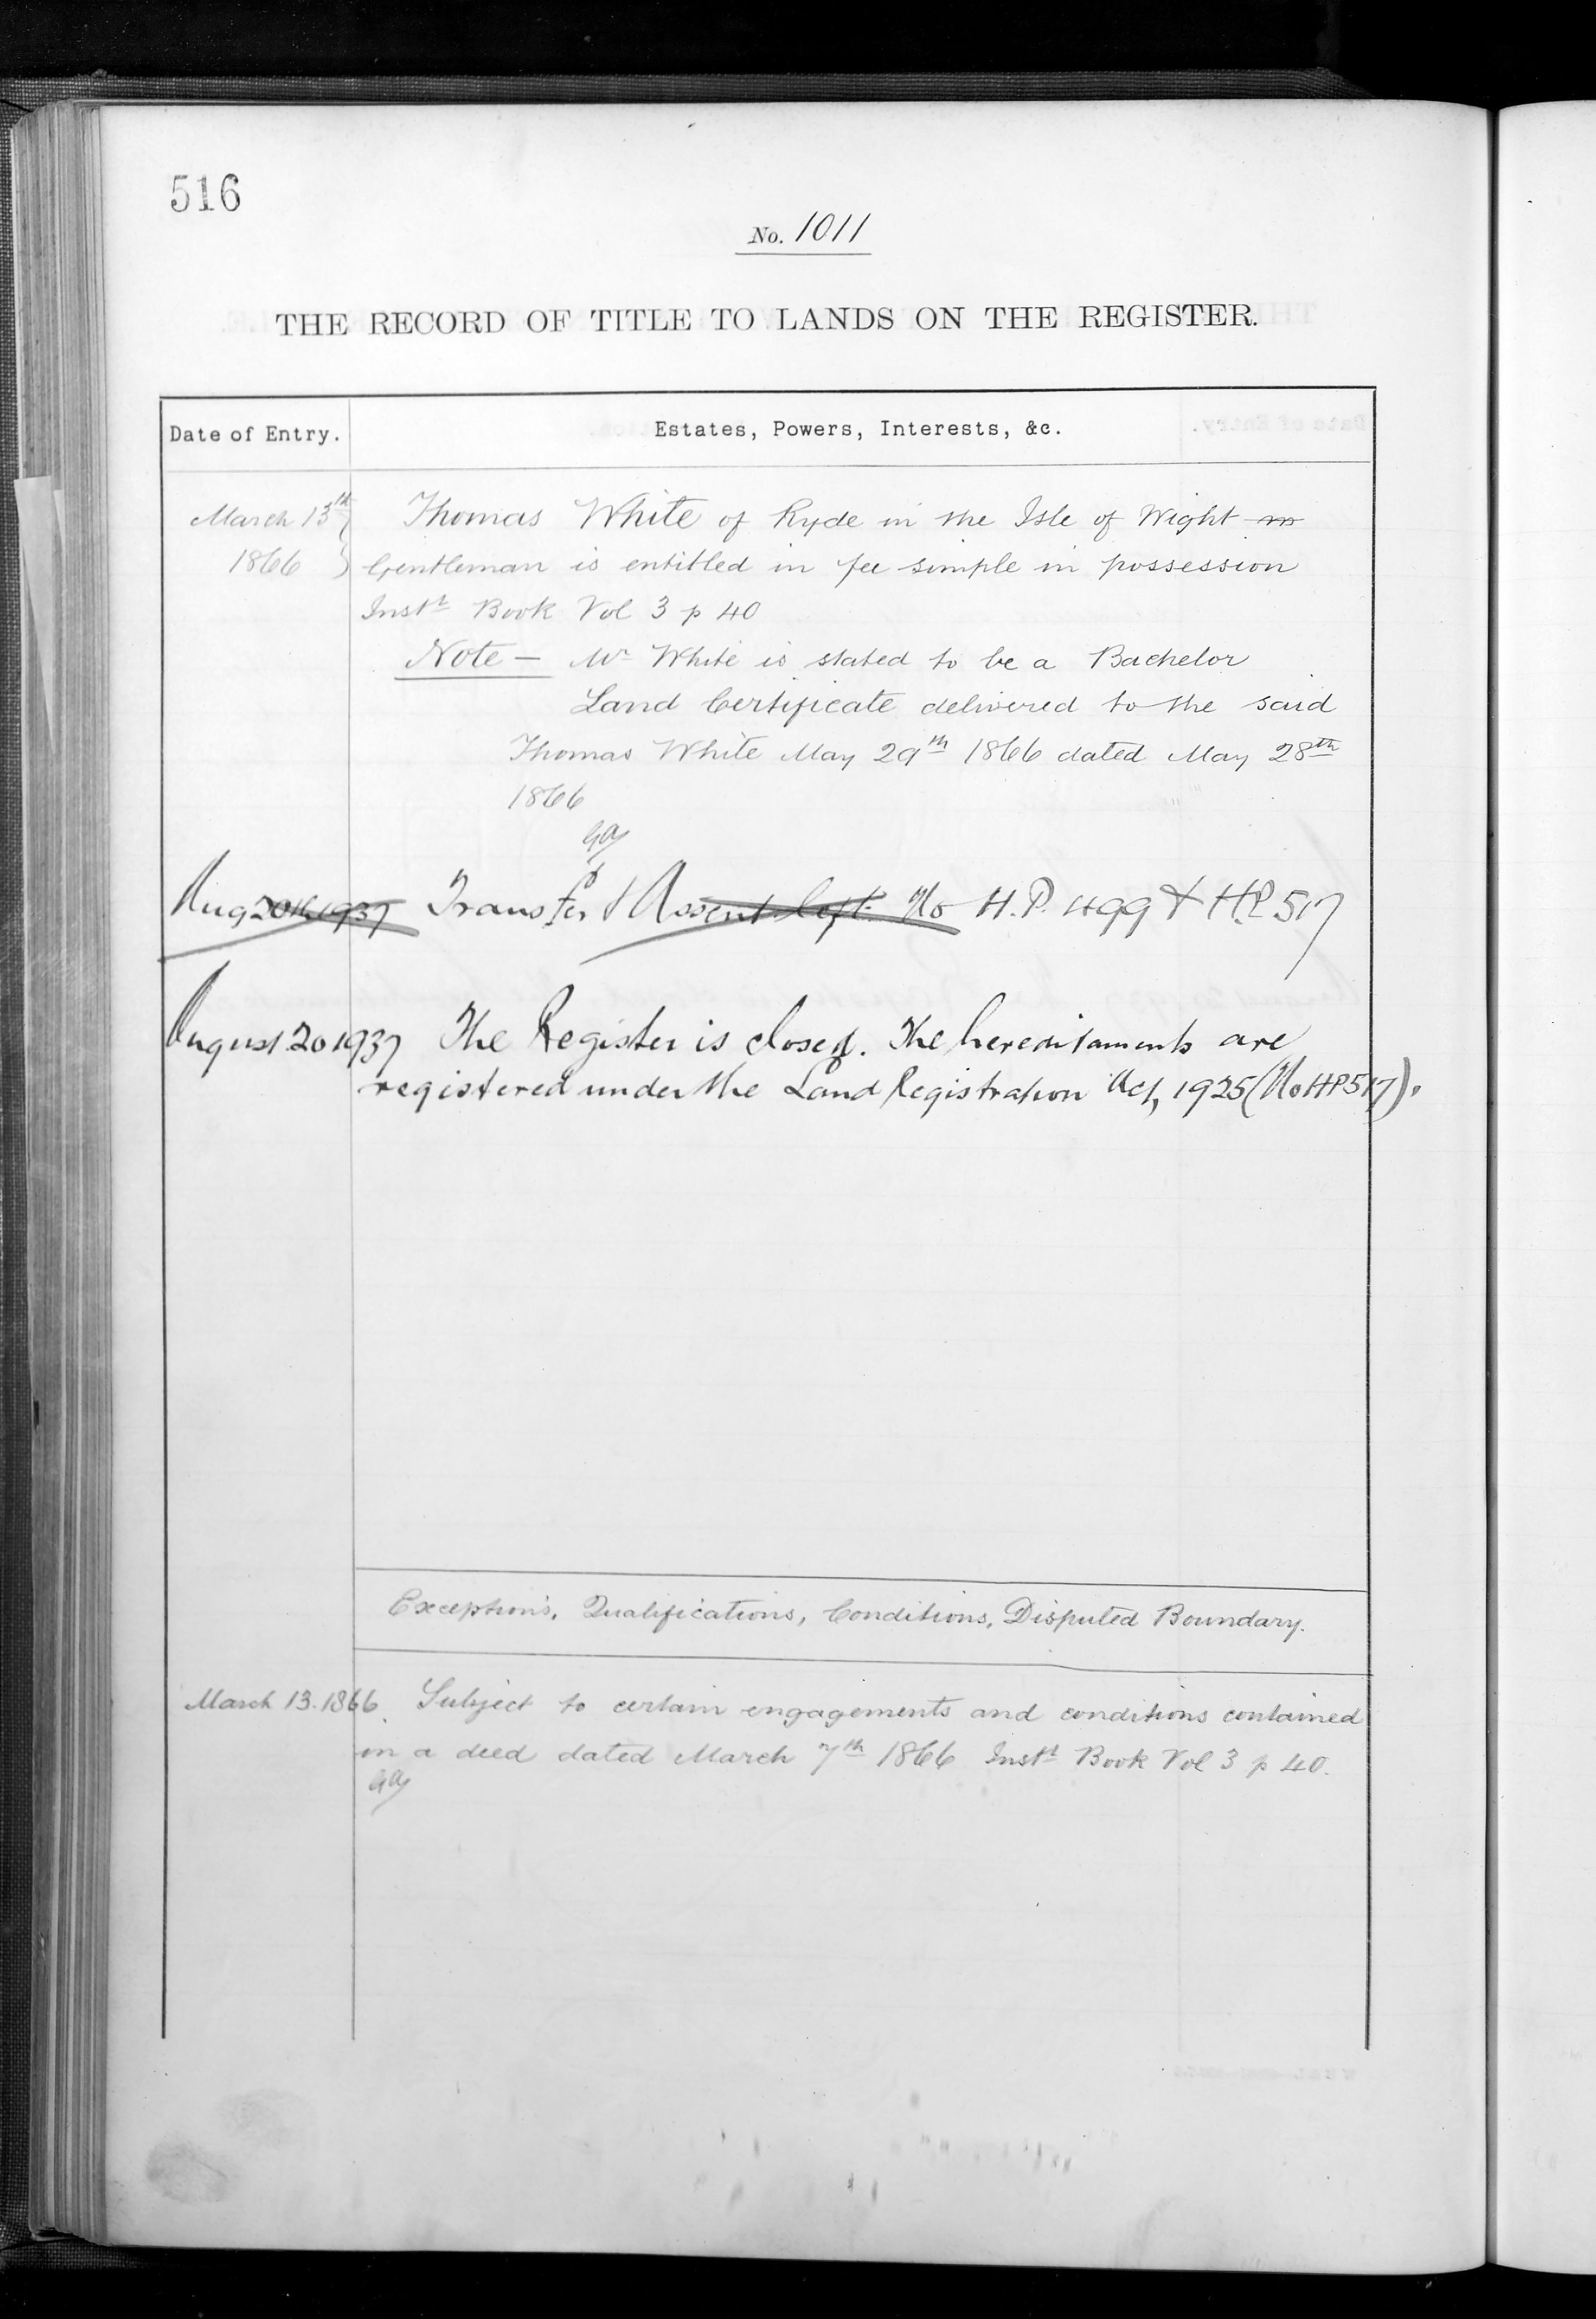 516
No. 1011
THE RECORD OF TITLE TO LANDS ON THE REGISTER.
Date of Entry. Estates, Powers, Interests, &c.
March 13th Thomas White of Ryde in the Isle of Wight
1866 Gentleman is entitled in fee simple in possession
Instt Book Vol 3 p 40
Note — Mr White is stated to be a Bachelor
Land Certificate delivered to the said
Thomas White May 29th 1866 dated May 28th
1866
Aug 20th 1937 Transfer & Assent left No H.P. 499 & H.P. 517
August 20 1937 The Register is closed. The hereditaments are
registered under the Land Registration Act, 1925 (No HP517).
Exceptions, Qualifications, Conditions, Disputed Boundary.
March 13. 1866. Subject to certain engagements and conditions contained
in a deed dated March 7th 1866 Instt Book Vol 3 p 40.